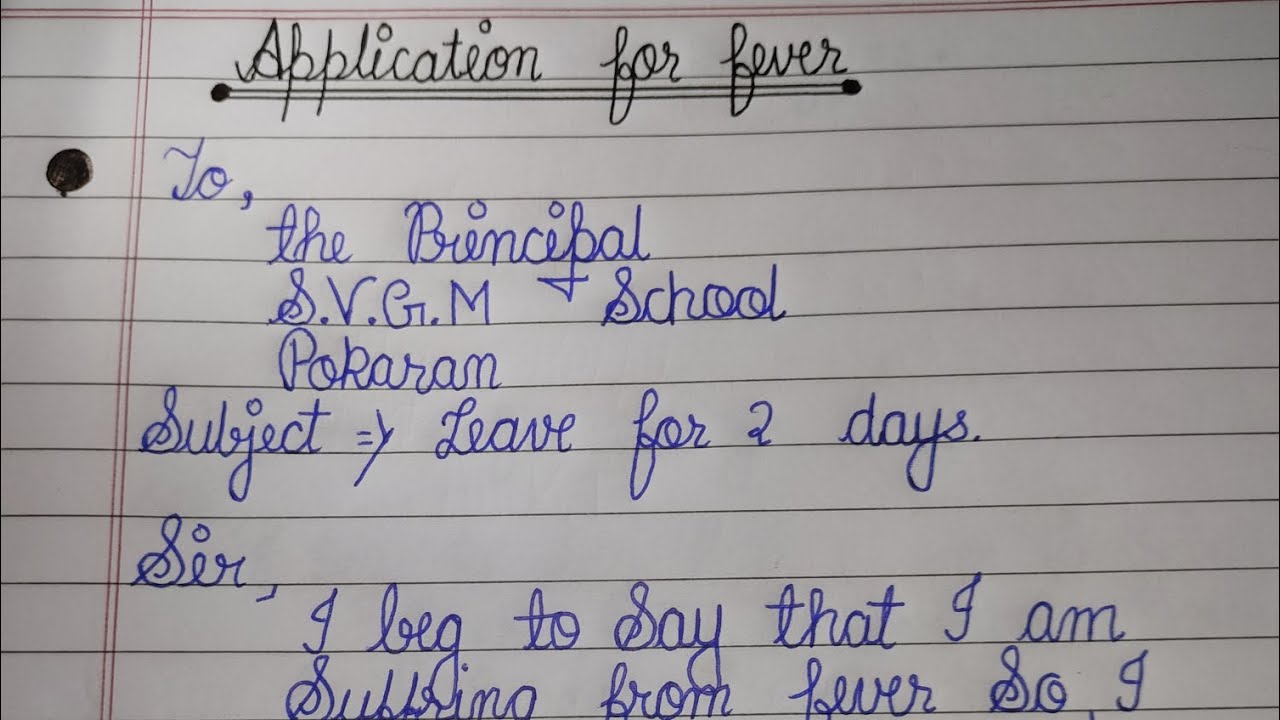 Application for fever
To,
the Principal
S.V.G.M School
Pokaran
Subject => Leave for 2 days.
Sir,
I beg to say that I am
Suffring from fever So I